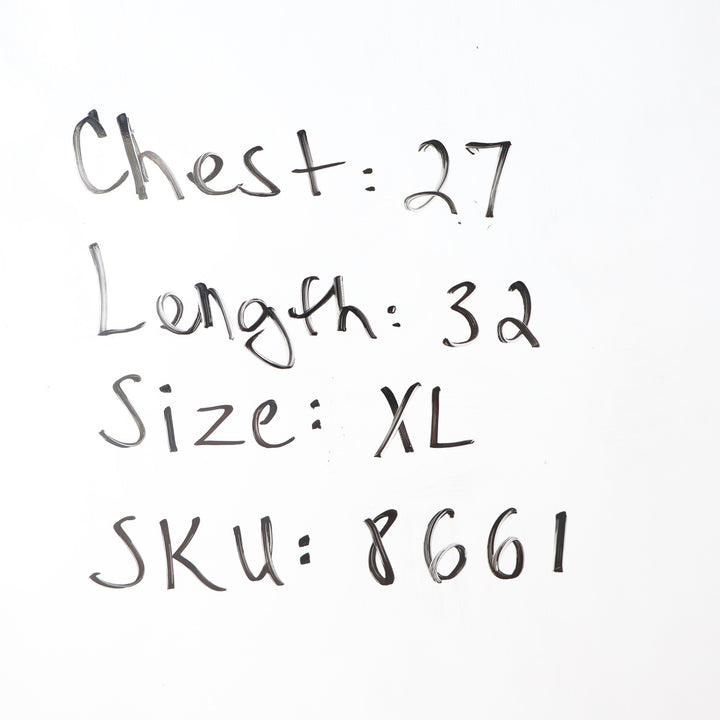 Chest: 27
Length: 32
Size: XL
SKU: 8661